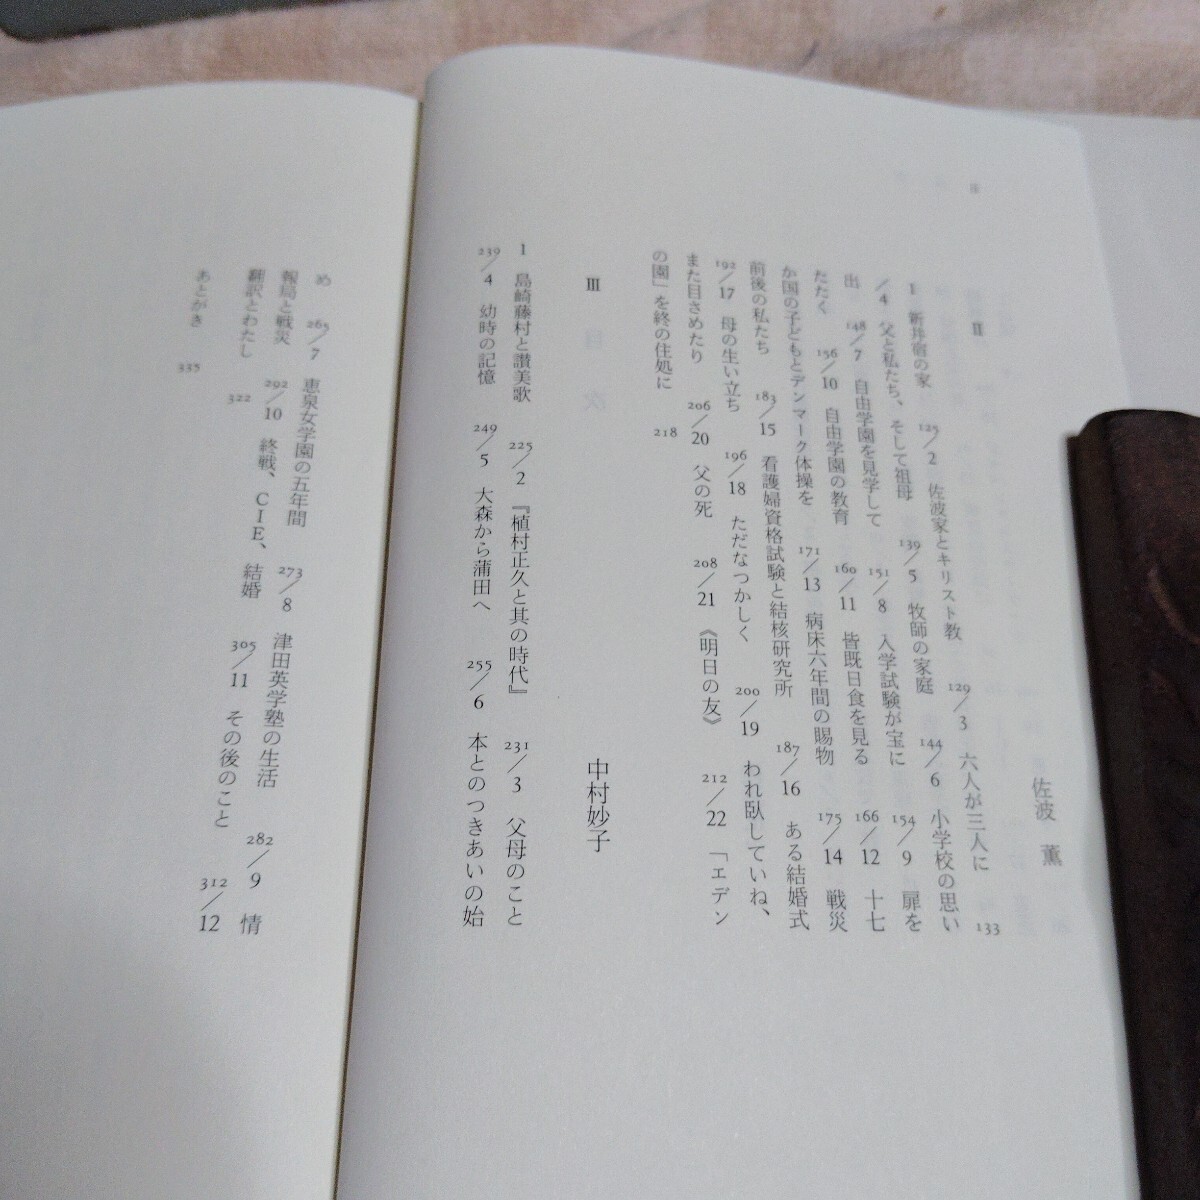 Ⅱ
佐波 薫
1 新井宿の家 125/2 佐波家とキリスト教 129/3 六人が三人に 133
/4 父と私たち、そして祖母 139/5 牧師の家庭 144/6 小学校の思い
出 148/7 自由学園を見学して 151/8 入学試験が宝に 154/9 扉を
たたく 156/10 自由学園の教育 160/11 皆既日食を見る 166/12 十七
か国の子どもとデンマーク体操を 171/13 病床六年間の賜物 175/14 戦災
前後の私たち 183/15 看護婦資格試験と結核研究所 187/16 ある結婚式
192/17 母の生い立ち 196/18 ただなつかしく 200/19 われ臥していね、
また目さめたり 206/20 父の死 208/21 《明日の友》 212/22 「エデン
の園」を終の住処に 218
Ⅲ
中村妙子
1 島崎藤村と讃美歌 225/2 『植村正久と其の時代』 231/3 父母のこと
239/4 幼時の記憶 249/5 大森から蒲田へ 255/6 本とのつきあいの始
め 265/7 恵泉女学園の五年間 273/8 津田英学塾の生活 282/9 情
報局と戦災 292/10 終戦、CIE、結婚 305/11 その後のこと 312/12
翻訳とわたし 322
あとがき 335